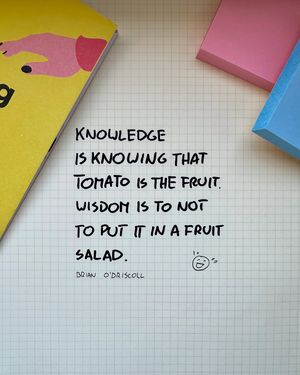 g
KNOWLEDGE
IS KNOWING THAT
TOMATO IS THE FRUIT.
WISDOM IS TO NOT
TO PUT IT IN A FRUIT
SALAD.
BRIAN O'DRISCOLL